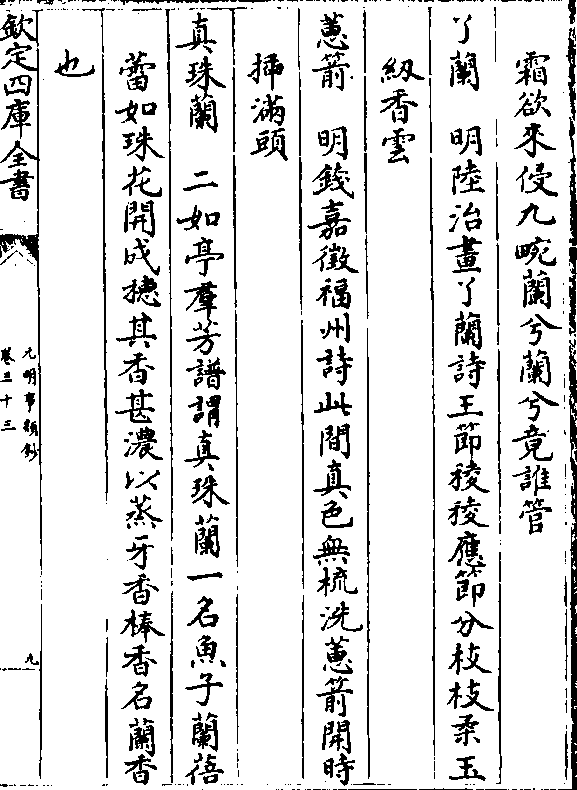 霜欲來侵九畹蘭兮蘭兮竟誰管
丫蘭　明陸治畫丫蘭詩玉節稜稜應節分枝枝柔玉
紉香雲
蕙箭　明錢嘉徵福州詩此間真色無梳洗蕙箭開時
揷滿頭
真珠蘭　二如亭羣芳譜謂真珠蘭一名魚子蘭蓓
蕾如珠花開成穗其香甚濃以蒸牙香棒香名蘭香
也
欽定四庫全書
元明事類鈔
卷三十三
九